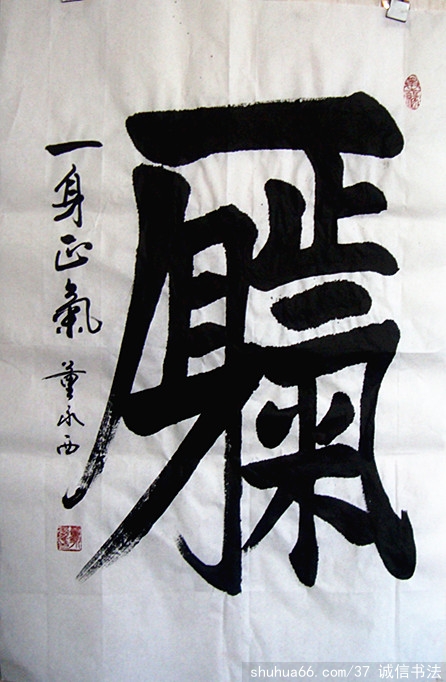 一身正氣
一身正氣
董永西
shuhua66.com/37 诚信书法